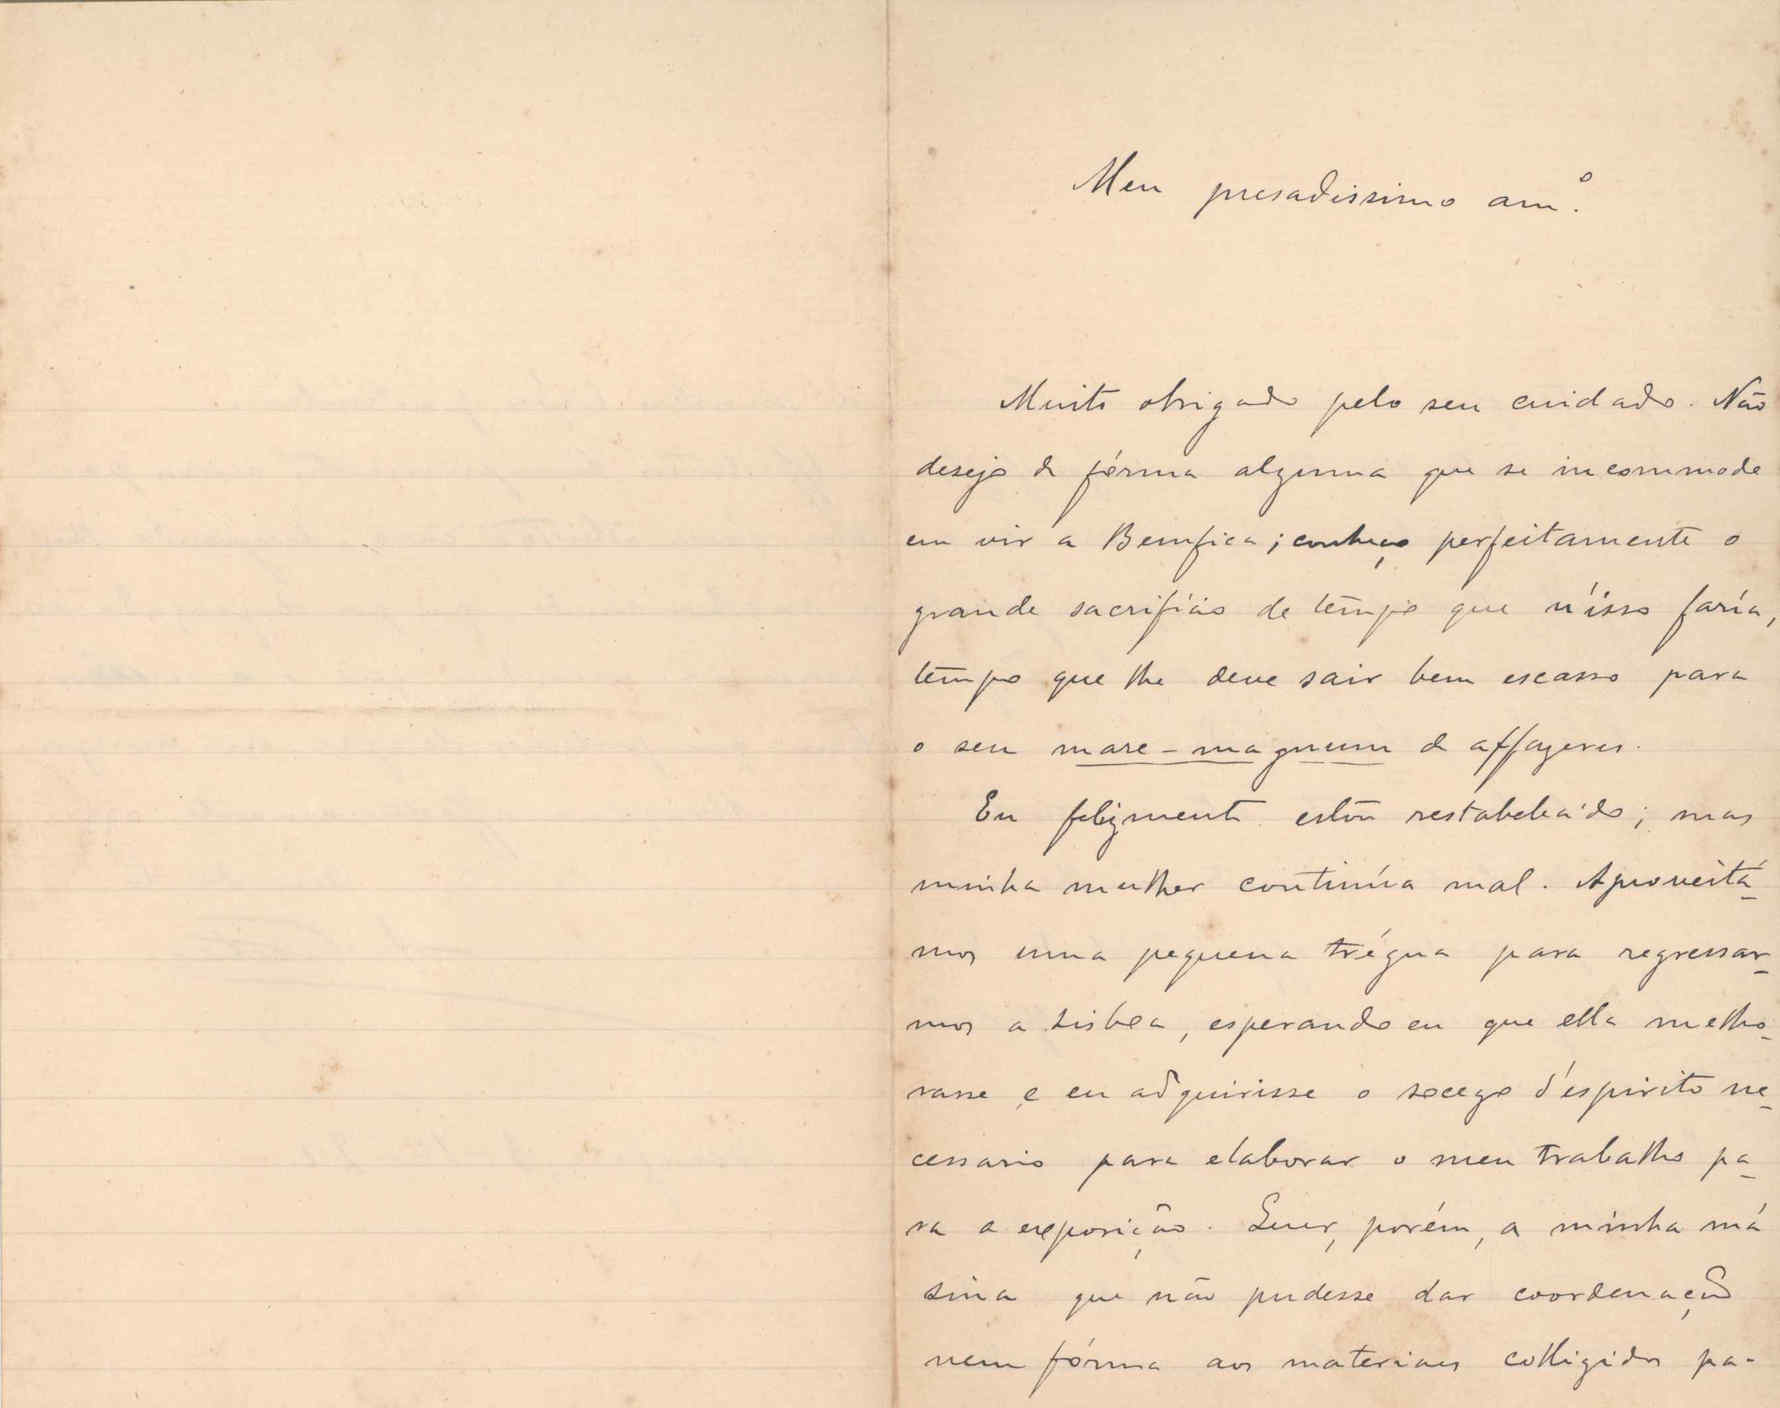 Meu presadissimo am.º
Muito obrigado pelo seu cuidado. Não
desejo de fórma alguma que se incommode
em vir a Bemfica; conheço perfeitamente o
grande sacrificio de tempo que n'isso faría,
tempo que lhe deve sair bem escasso para
o seu mare-magnum de affazeres.
Eu felizmente estou restabelecido; mas
minha mulher continúa mal. Aproveitá-
mos uma pequena trégua para regressar-
mos a Lisboa, esperando eu que ella melho-
rasse e eu adquirisse o socego d'espirito ne-
cessario para elaborar o meu trabalho pa-
ra a exposição. Quer, porém, a minha má
sina que não pudesse dar coordenação
nem fórma aos materiaes colligidos pa-